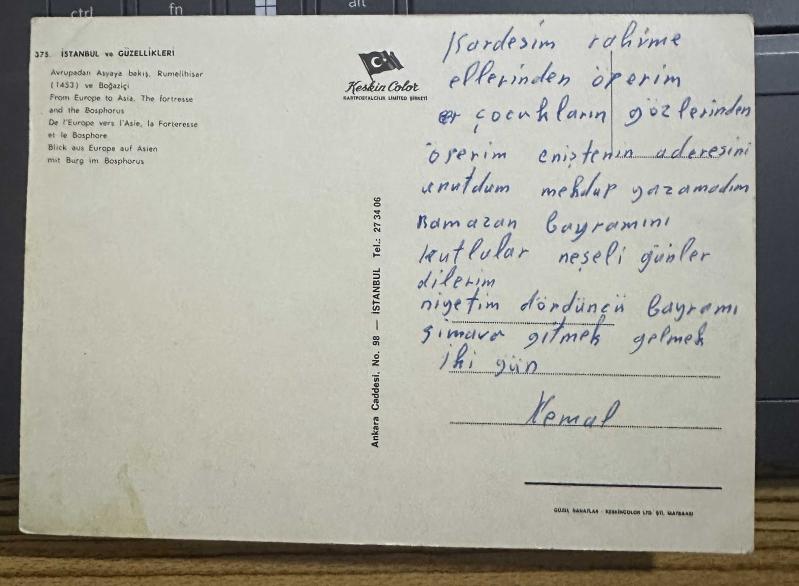 ctrl
fn
alt
375. İSTANBUL ve GÜZELLİKLERİ
Avrupadan Asyaya bakış, Rumelihisar
(1453) ve Boğaziçi
From Europe to Asia. The fortresse
and the Bosphorus
De l'Europe vers l'Asie, la Forteresse
et le Bosphore
Blick aus Europe auf Asien
mit Burg im Bosphorus
Keskin Color
KARTPOSTALCILIK LİMİTED ŞİRKETİ
Ankara Caddesi. No. 98 — İSTANBUL Tel.: 27 34 06
Kardesim rahime
ellerinden öperim
çocukların gözlerinden
öperim eniştenin aderesini
unutdum mekdup yazamadım
Ramazan bayramını
kutlular neşeli günler
dilerim
niyetim dördüncü bayramı
simava gitmek gelmek
iki gün
Kemal
GÜZEL SANATLAR - KESKİNCOLOR LTD. ŞTİ. MATBAASI